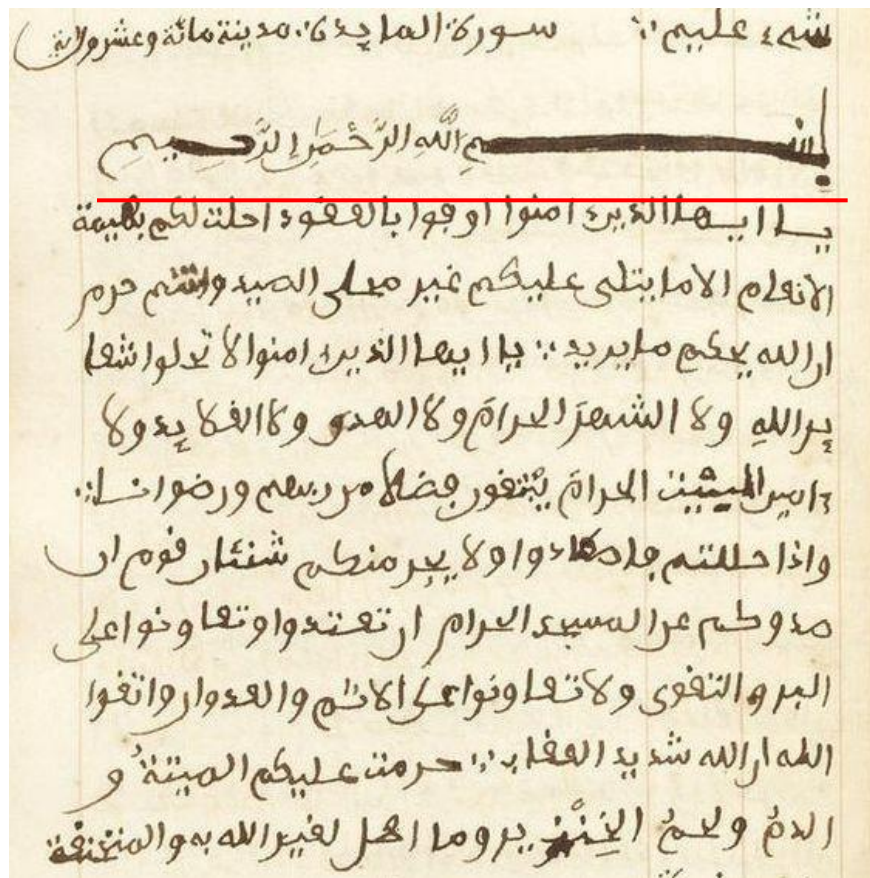 شيء عليم ∴ سورة المايدة مدينة مائة وعشرون اية
بسم اللَّهِ الرَّحْمَٰنِ الرَّحِيمِ
يا ايها الذين ءامنوا اوفوا بالعقود احلت لكم بهيمة
الانعام الا ما يتلى عليكم غير محلى الصيد وانتم حرم
ان الله يحكم ما يريد ∴ يا ايها الذين امنوا لا تحلوا شعا
ير اللهِ ولا الشهرَ الحرامَ ولا الهدى ولا القلايد ولا
ءامين البيت الحرامَ يَبْتغون فضلا من ربهم ورضوانا ∴
واذا حللتم فاصطادوا ولا يجرمنكم شنئان قوم ان
صدوكم عن المسجد الحرام ان تعتدوا وتعاونوا على
البر والتقوى ولا تعاونوا على الاثم والعدوان واتقوا
الله ان الله شديد العقاب ∴ حرمت عليكم الميتةُ و
الدمُ ولحمُ الخِنْزِير وما اهل لغير الله به والمنخنقة